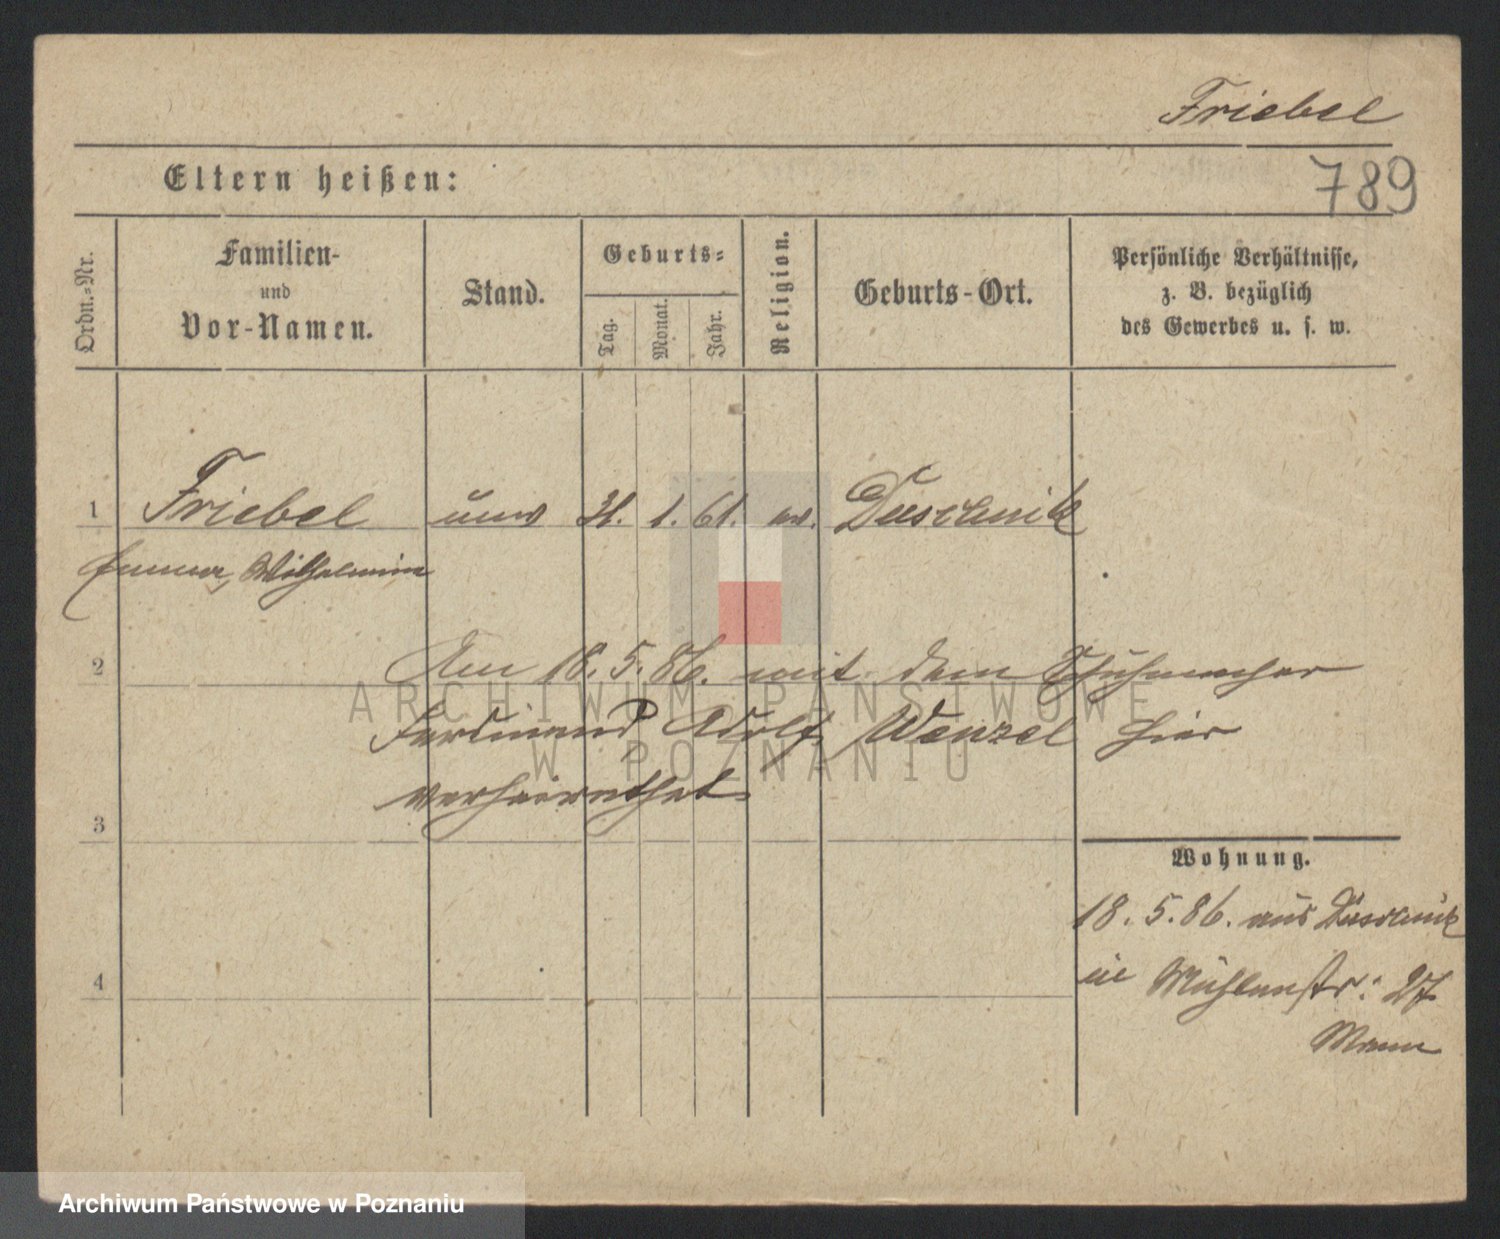 Friebel
789
Eltern heißen:
Ordn.-Nr.
Familien-
und
Vor-Namen.
Stand.
Geburts-
Tag.
Monat.
Jahr.
Religion.
Geburts-Ort.
Persönliche Verhältnisse,
z. B. bezüglich
des Gewerbes u. s. w.
1 Friebel unv 31. 1. 61. ev. Duschnik
Emma, Wilhelmine
2 Am 18. 5. 86. mit dem Schuhmacher
Ferdinand Adolf Wenzel hier
verheirathet
3
Wohnung.
18. 5. 86. aus Duschnik
in Mühlenstr: 27
Mann
4
ARCHIWUM PAŃSTWOWE
W POZNANIU
Archiwum Państwowe w Poznaniu